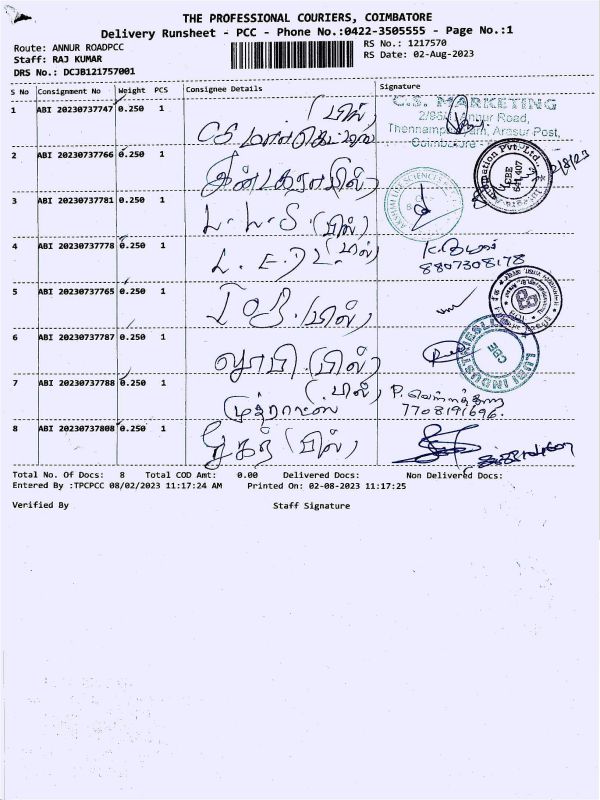 THE PROFESSIONAL COURIERS, COIMBATORE
Delivery Runsheet - PCC - Phone No.:0422-3505555 - Page No.:1
Route: ANNUR ROADPCC
RS No.: 1217570
Staff: RAJ KUMAR
RS Date: 02-Aug-2023
DRS No.: DCJB121757001
S No Consignment No Weight PCS Consignee Details Signature
1 ABI 20230737747 0.250 1 (பில்)
CS மார்கெட்டிங்
C.S. MARKETING
Annur Road,
Arasur Post,
Coimbatore
2 ABI 20230737766 0.250 1 (பில்)
2/8/23
3 ABI 20230737781 0.250 1 L.L.S. (பில்)
4 ABI 20230737778 0.250 1 (பில்)
8807308178
5 ABI 20230737765 0.250 1 (பில்)
6 ABI 20230737787 0.250 1 லூபி (பில்)
LUBI INDUSTRIES LLP
CBE
7 ABI 20230737788 0.250 1 (பில்)
7708191696.
8 ABI 20230737808 0.250 1 (பில்)
Total No. Of Docs: 8 Total COD Amt: 0.00 Delivered Docs: Non Delivered Docs:
Entered By :TPCPCC 08/02/2023 11:17:24 AM Printed On: 02-08-2023 11:17:25
Verified By Staff Signature